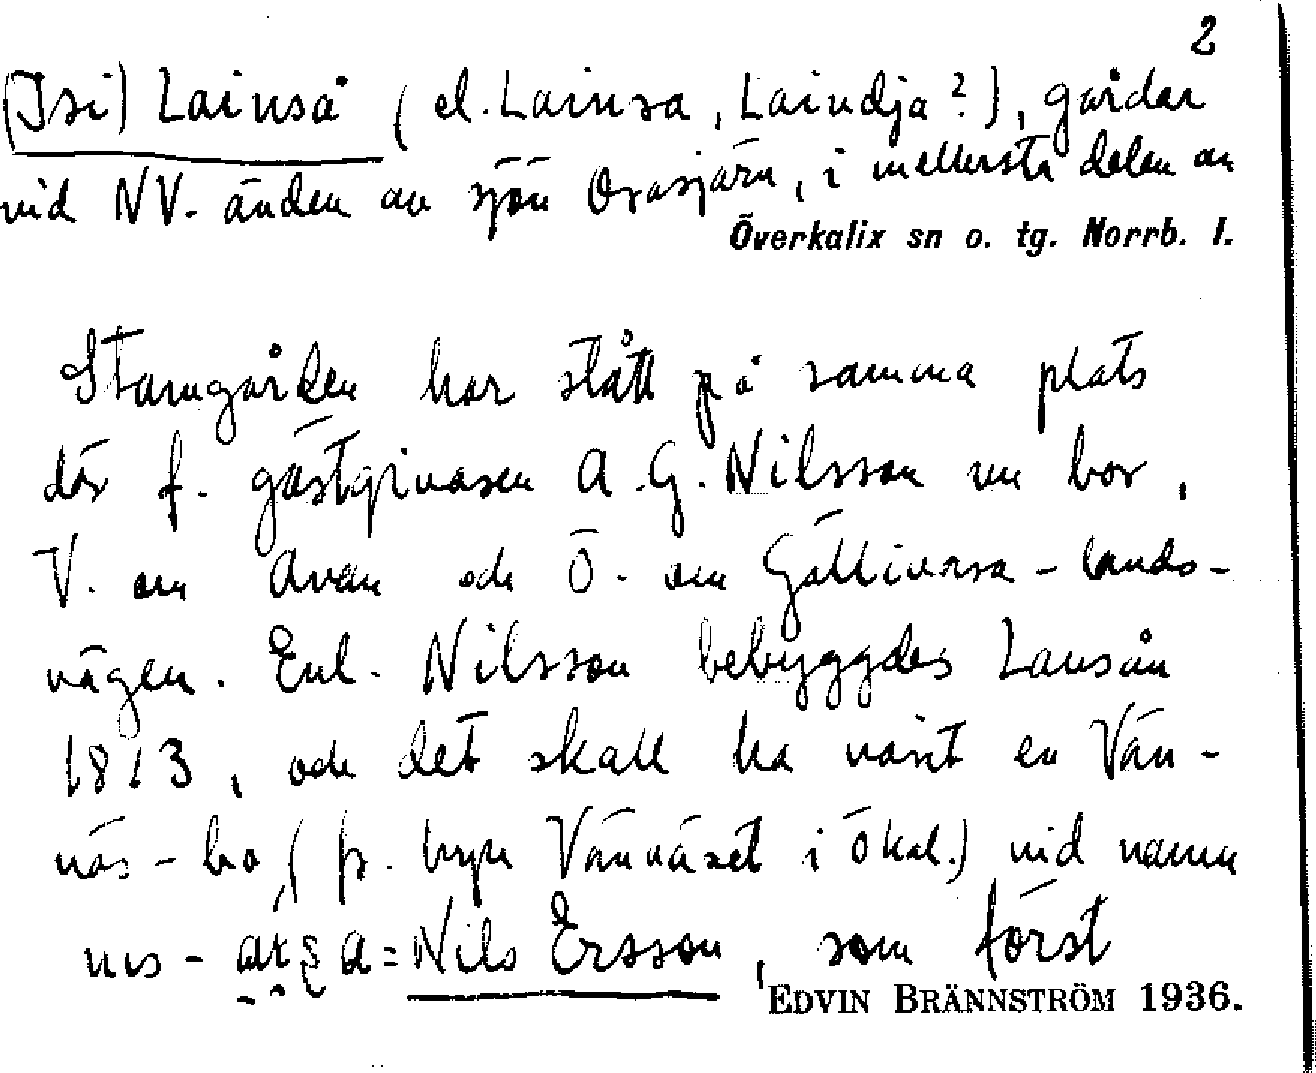 2
(Isi) Lainså (el. Lainsa, Laindja?), gårdar
vid NV. änden av sjön Orasjärv, i mellersta delen av
Överkalix sn o. tg. Norrb. l.
Stamgården har stått på samma plats
där f. gästgivaren A.G. Nilsson nu bor,
V. om Avan och Ö. om Gällivara-lands-
vägen. Enl. Nilsson bebyggdes Lansån
1813, och det skall ha varit en Vän-
näs-bo (fr. byn Vännäset i Ökal.) vid namn
Nils Ersson, som först
EDVIN BRÄNNSTRÖM 1936.